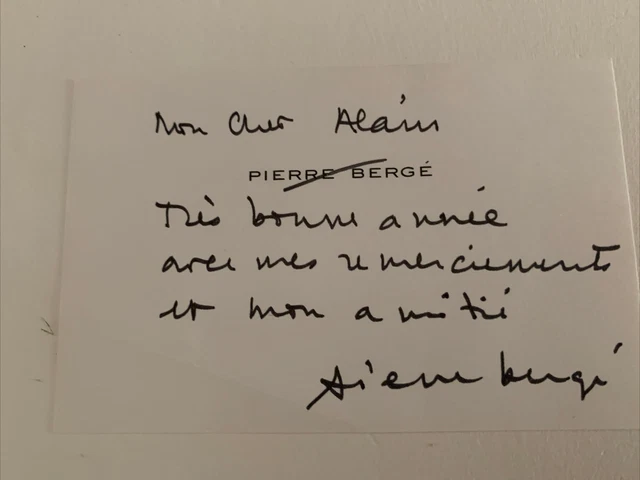 Mon cher Alain
PIERRE BERGÉ
Très bonne année
avec mes remerciements
et mon amitié
Pierre Bergé